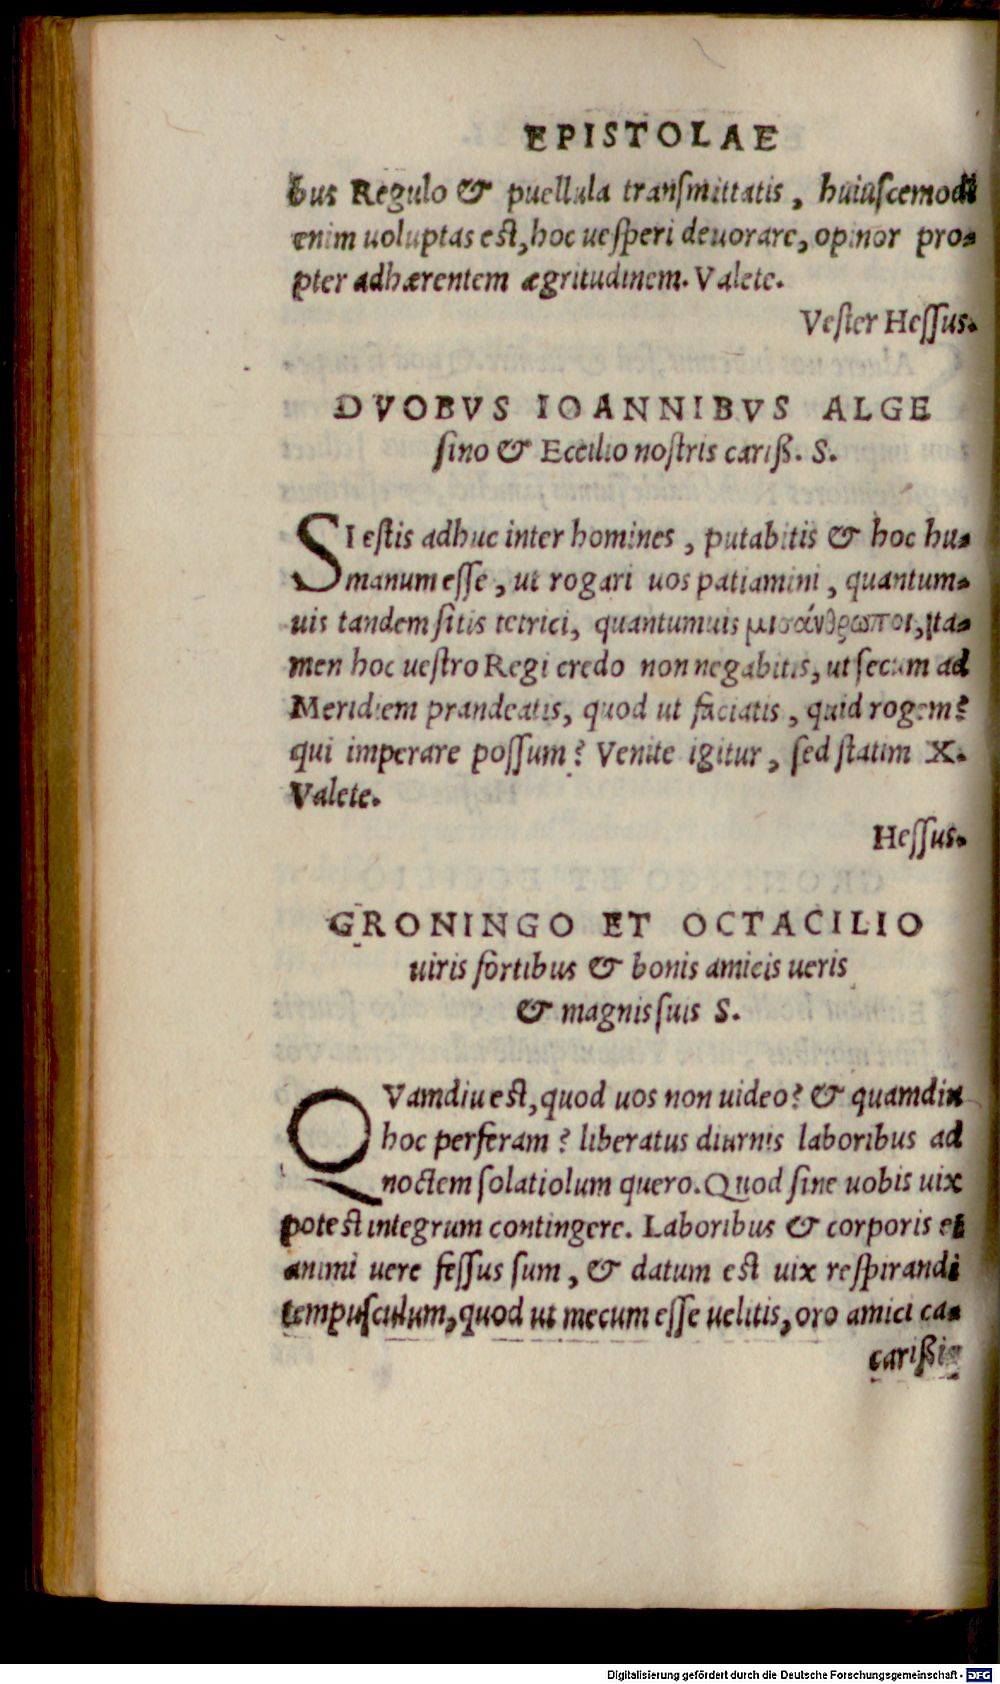 EPISTOLAE
bus Regulo & puellula transmittatis, huiuscemodi
enim uoluptas est, hoc uesperi deuorare, opinor pro-
pter adhærentem ægritudinem. Valete.
Vester Hessus.
DVOBVS IOANNIBVS ALGE
sino & Eccilio nostris cariß. S.
SI estis adhuc inter homines, putabitis & hoc hu-
manum esse, ut rogari uos patiamini, quantum-
uis tandem sitis tetrici, quantumuis μισάνθρωποι, ta-
men hoc uestro Regi credo non negabitis, ut secum ad
Meridiem prandeatis, quod ut faciatis, quid rogem?
qui imperare possum? Venite igitur, sed statim X.
Valete.
Hessus.
GRONINGO ET OCTACILIO
uiris fortibus & bonis amicis ueris
& magnis suis S.
QVamdiu est, quod uos non uideo? & quamdiu
hoc perferam? liberatus diurnis laboribus ad
noctem solatiolum quero. Quod sine uobis uix
potest integrum contingere. Laboribus & corporis et
animi uere fessus sum, & datum est uix respirandi
tempusculum, quod ut mecum esse uelitis, oro amici ca-
carißi-
Digitalisierung gefördert durch die Deutsche Forschungsgemeinschaft - DFG